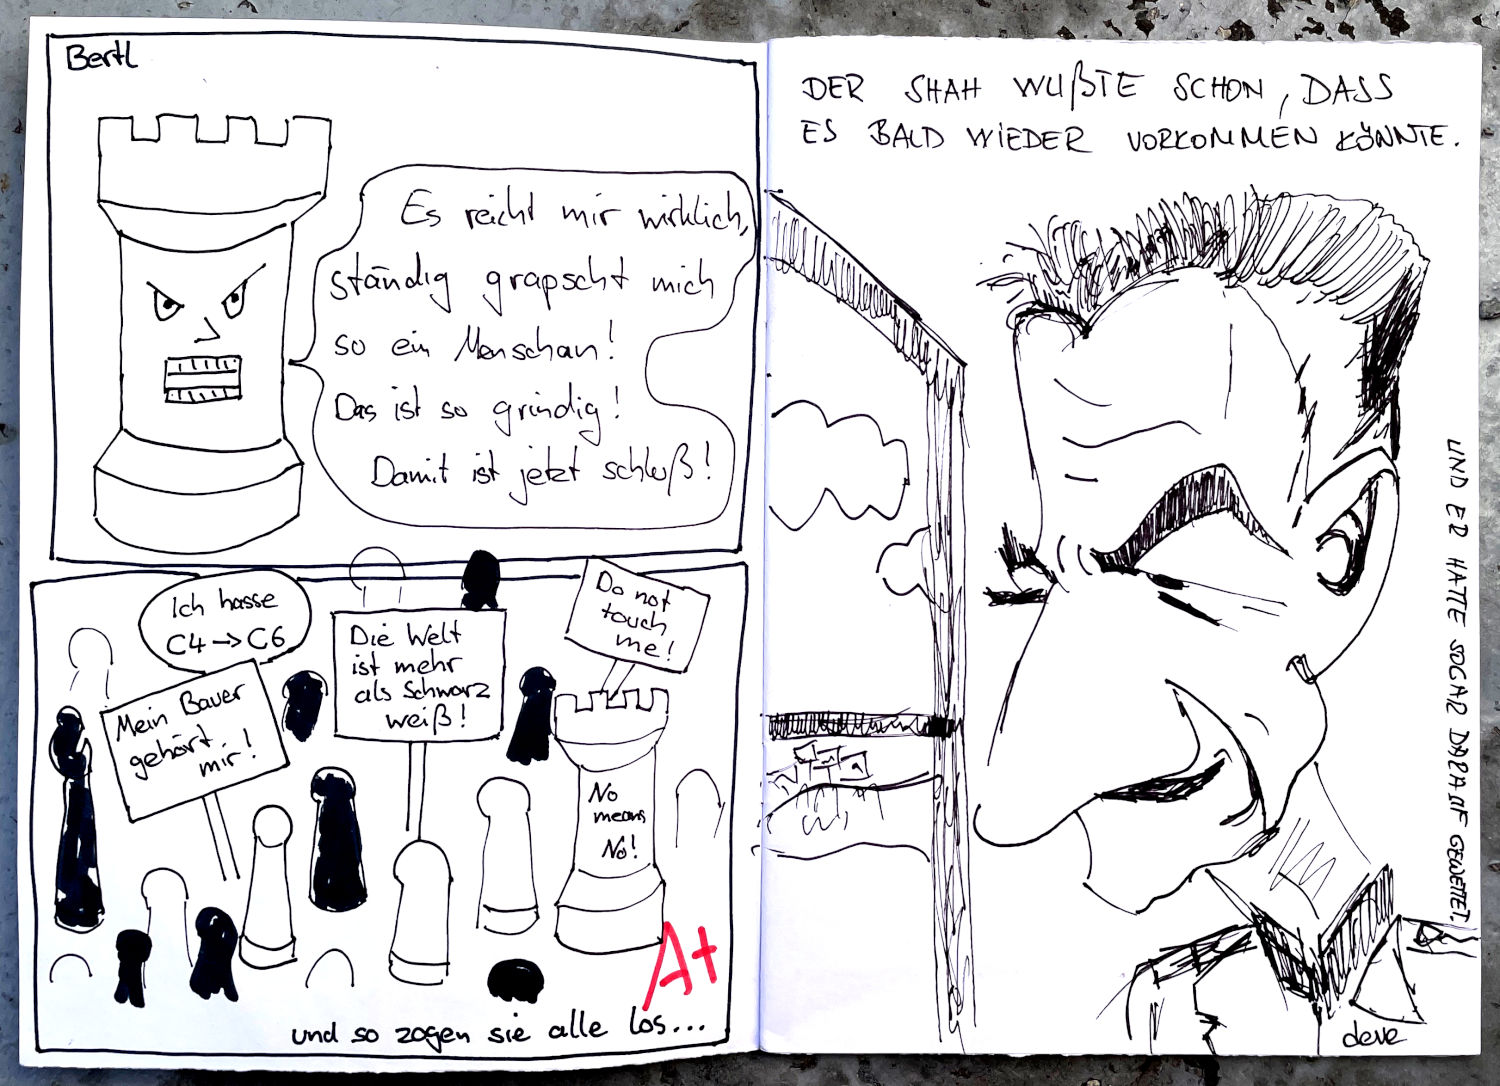 Bertl
Es reicht mir wirklich,
ständig grapscht mich
so ein Menschan!
Das ist so grindig!
Damit ist jetzt schluß!
Ich hasse
C4→C6
Mein Bauer
gehört
mir!
Die Welt
ist mehr
als Schwarz
weiß!
Do not
touch
me!
No
means
No!
A+
und so zogen sie alle los...
DER SHAH WUßTE SCHON, DASS
ES BALD WIEDER VORKOMMEN KÖNNTE.
UND ER HATTE SOGAR DARAUF GEWETTET.
deve